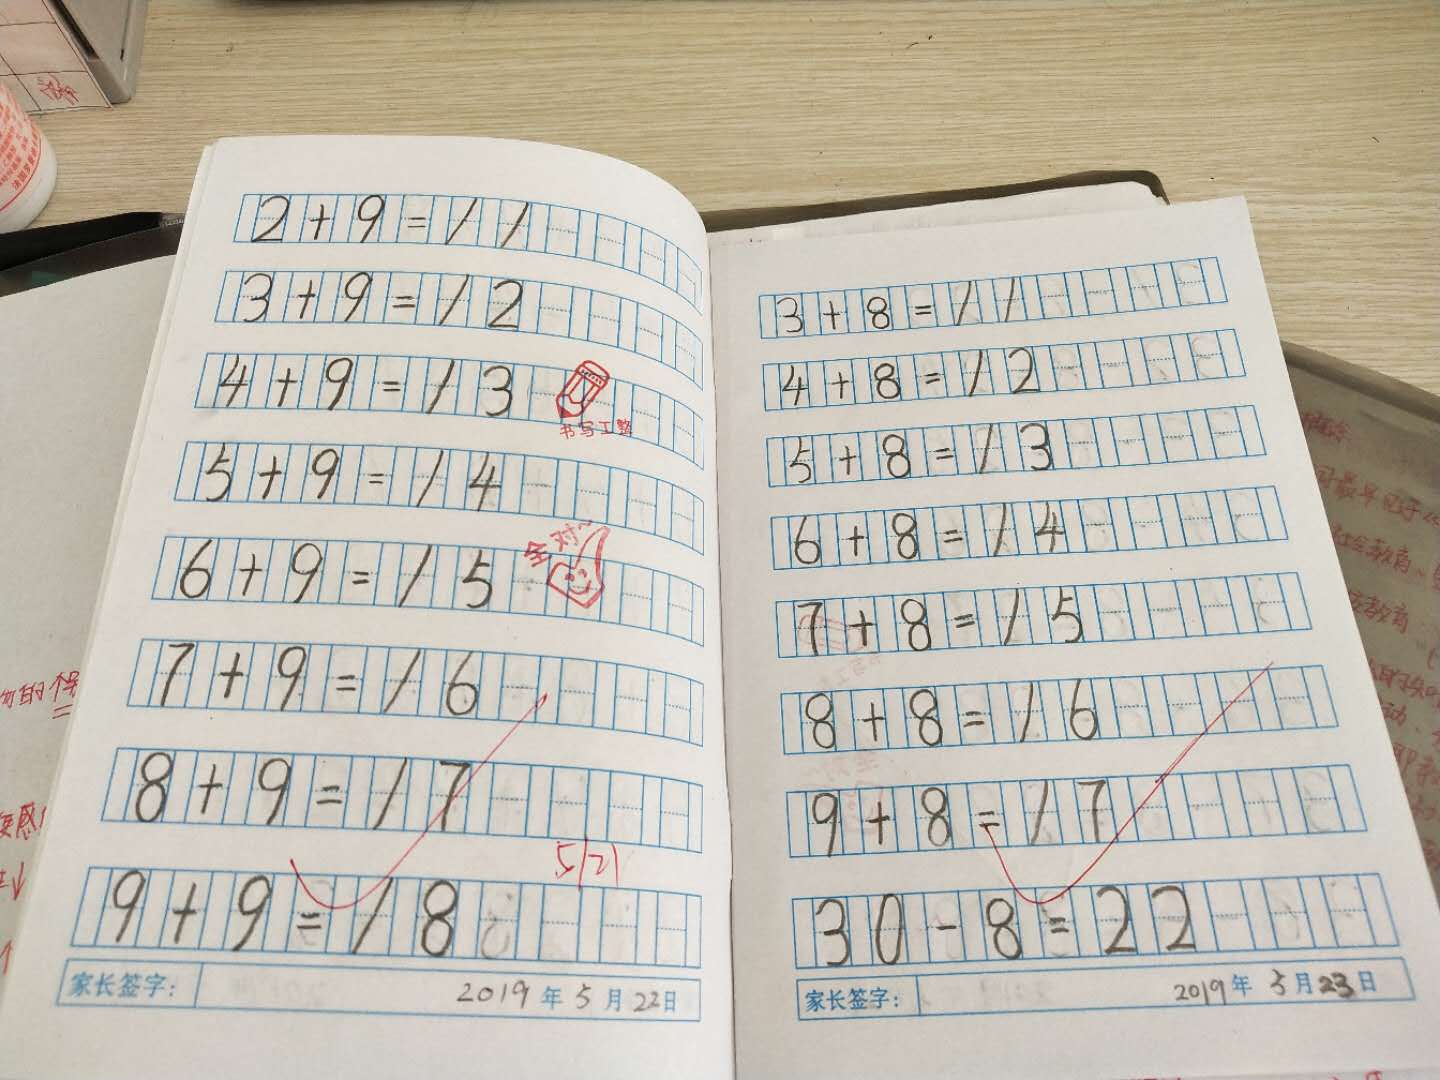 2+9=11
3+9=12
4+9=13
书写工整
5+9=14
全对~
6+9=15
7+9=16
8+9=17
5/21
9+9=18
家长签字：
2019年5月22日
3+8=11
4+8=12
5+8=13
6+8=14
7+8=15
8+8=16
9+8=17
30-8=22
家长签字：
2019年5月23日